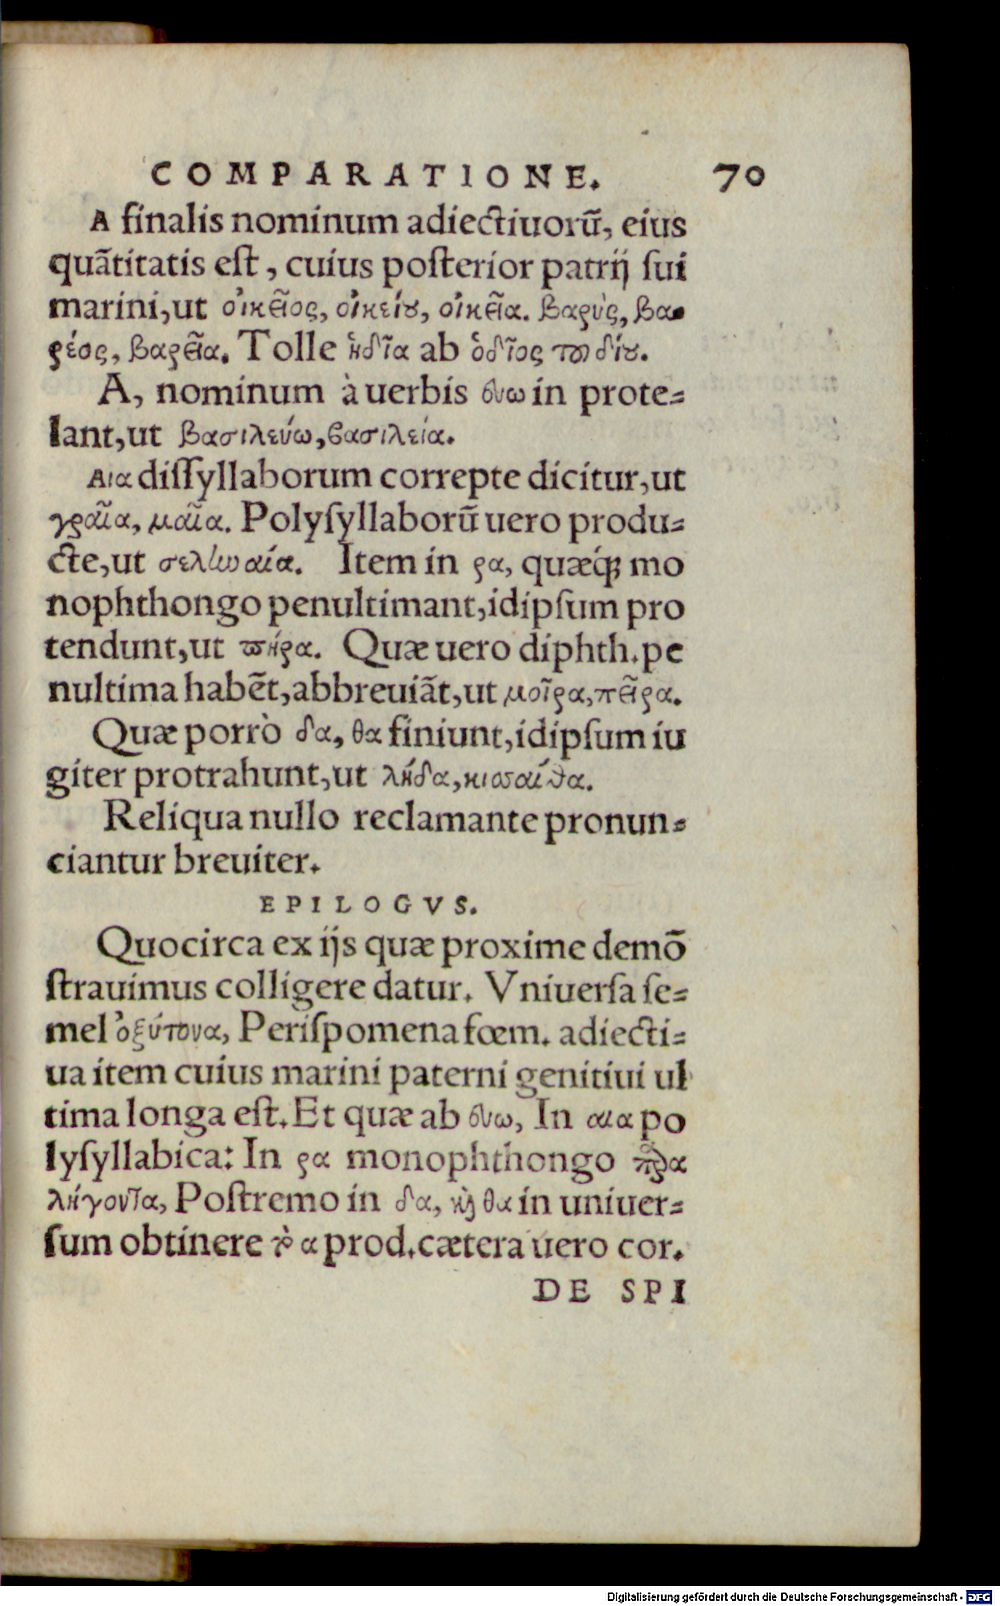 COMPARATIONE. 70
A finalis nominum adiectiuorũ, eius
quãtitatis est, cuius posterior patrij sui
marini, ut οἰκεῖος, οἰκείȣ, οἰκεῖα. βαρὺς, βα-
ρέος, βαρεῖα. Tolle ἡδῖα ab ὁδῖος
A, nominum à uerbis ευω in prote-
lant, ut βασιλεύω, βασιλεία.
αια dissyllaborum correpte dicitur, ut
γραῖα, μαῖα. Polysyllaborũ uero produ-
cte, ut σεληναία. Item in ρα, quæq́ꝫ mo
nophthongo penultimant, idipsum pro
tendunt, ut πήρα. Quæ uero diphth. pe
nultima habẽt, abbreuiãt, ut μοῖρα, πεῖρα.
Quæ porrò δα, θα finiunt, idipsum iu
giter protrahunt, ut λήδα,
Reliqua nullo reclamante pronun-
ciantur breuiter.
EPILOGVS.
Quocirca ex ijs quæ proxime demõ
strauimus colligere datur. Vniuersa se-
mel ὀξύτονα, Perispomena fœm. adiecti-
ua item cuius marini paterni genitiui ul
tima longa est. Et quæ ab ευω, In αια po
lysyllabica: In ρα monophthongo παρα
λήγοντα, Postremo in δα, καὶ θα in uniuer-
sum obtinere τὸ α prod. cætera uero cor.
DE SPI
Digitalisierung gefördert durch die Deutsche Forschungsgemeinschaft - DFG